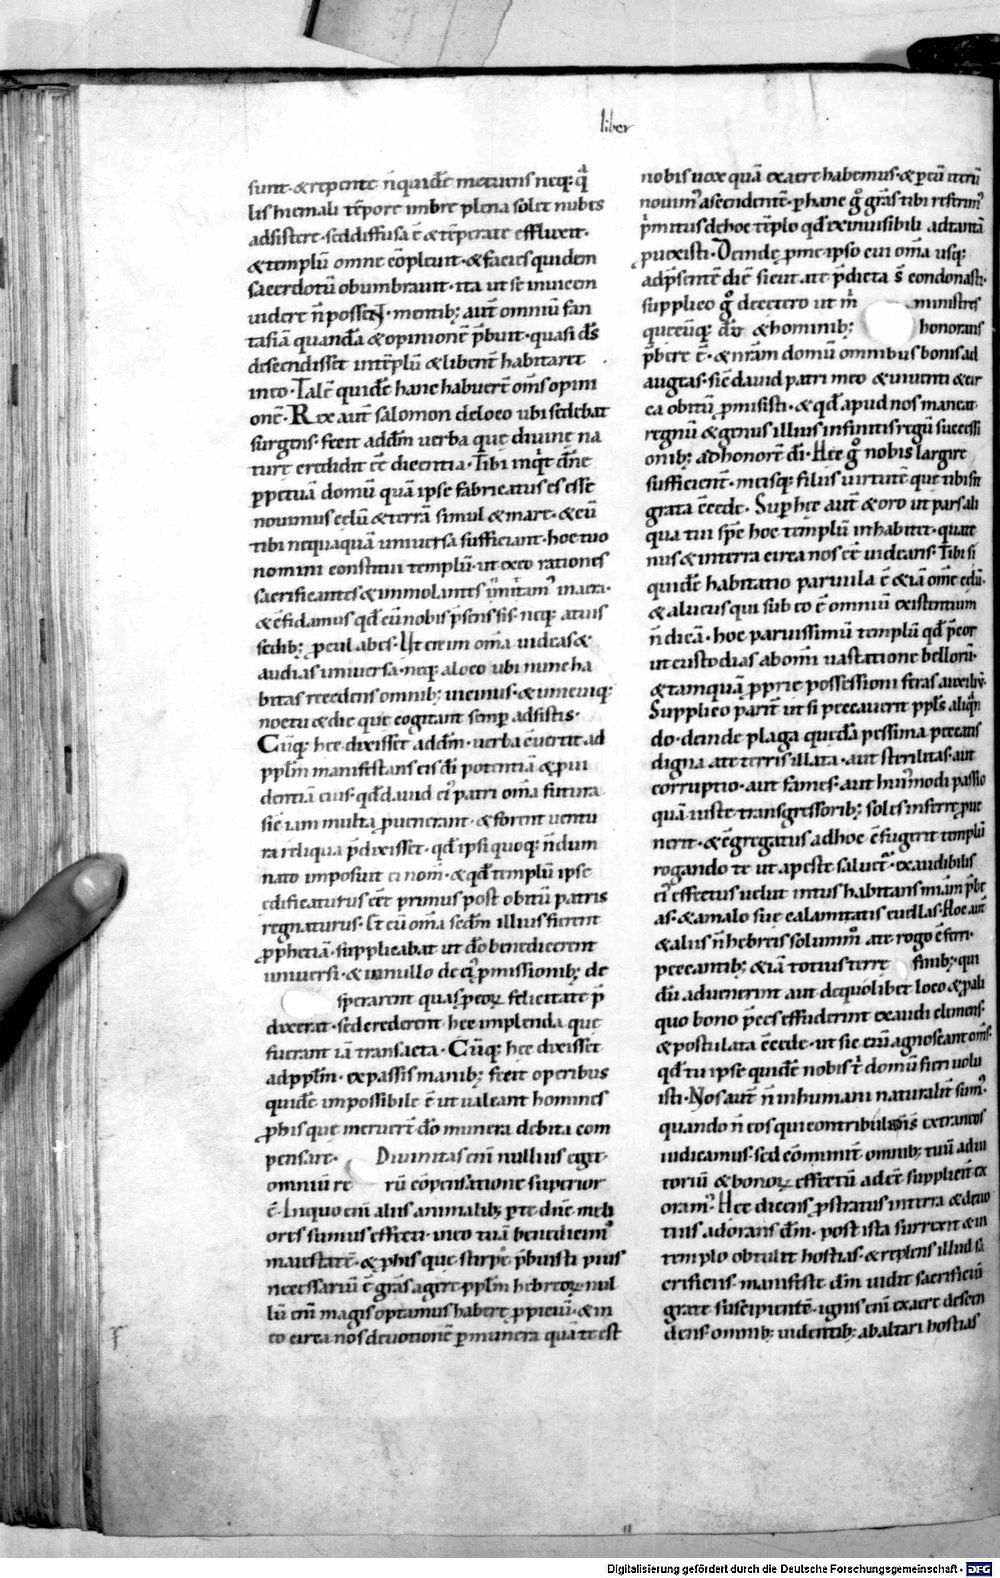 liber
sunt·&repente n̄quidē metuens neq; q̄
lis hiemali tēpore imbre plena solet nubes
adsistere·seddiffusa ē &tēperate effluxit·
&templū omne cōpleuit·&facies quidem
sacerdotū obumbrauit·ita ut se inuicem
uidere n̄ possent·mentib; aut̄ omniū fan
tasiā quandā &opinionē p̄buit·quasi d̄s
descendisset intēplū &libent̄ habitaret
ineo·Talē quidē hanc habuer̄t om̄s opini
onē·Rex aut̄ salomon deloco ubi sedebat
surgens·fecit addm̄ uerba quę diuinę na
turę credidit ēē dicentia·Tibi inq̇t dn̄e
ꝑpetuā domū quā ipse fabricatus es esse
nouimus cęlū &terrā simul &mare·&eū
tibi nequaquā uniuersa sufficiant·hoc tuo
nomini constitui templū·ut exeo rationes
sacrificantes &immolantes
&c̄fidamus qd̄ cū nobis p̄sens sis·neq; atuis
sedib; ꝓcul abes· Ut enim om̄a uideas &
audias uniuersa·neq; aloco ubi nunc ha
bitas recedens omnib; uicinus·&unicuiq;
noctu &die quę cogitant semꝑ adsistis·
Cūq; hęc dixisset addm̄·uerba c̄uertit ad
ppl̄m manifestans eis dī potentiā &ꝓui
dentiā eius·qd̄ dauid ei᷒ patri om̄a futura
sic̄ iam multa ꝓuenerant·&forent uentu
ra reliqua p̄dixisset·qd̄ ipsi quoq; n̄dum
nato imposuit ei nom̄·&qd̄ templū ipse
edificaturus eēt primus post obitū patris
regnaturus·Et cū om̄a scdm̄ illius fierent
ꝓphetiā·supplicabat ut dō benedicerent
uniuersi·&innullo de ei᷒ ꝓmissionib; de
sperarent quas ꝓeoꝝ felicitate p̄
dixerat·sed crederent hęc implenda quę
fuerant iā transacta·Cūq; hęc dixisset
adppl̄m·expassis manib; fecit operibus
quidē impossibile ē ut ualeant homines
ꝓ his quę meruer̄t dō munera debita com
pensare· Diuinitas enī nullius eget·
omniū re rū cōpensatione superior
ē·Inquo enī aliis animalib; ꝑte dn̄e meli
ores sumus effecti·ineo tuā benedicim᷒
maiestatē·&ꝓ his quę stirpi p̄buisti pius
necessariū ē grās agere·ppl̄m hebreoꝝ·nul
lū enī magis optamus habere ꝓpiciū·&in
eo circa nos deuotionē ꝑ munera quā te est
nobis uox quā exaere habemus·&ꝑ eū iterū
nouim᷒ ascendentē·ꝑ hanc gͦ grās tibi referim᷒
p̄mitus dehoc tēplo qd̄ exinuisibili adtantā
ꝓuexisti·Deinde ꝓme ipso cui om̄a usq;
adp̄sentē diē sicut ate p̄dicta s̄ condonasti·
supplico gͦ decetero ut m̄ ministres
quęcūq; &hominib; honorans
p̄bere ē·&nr̄am domū omnibus bonis ad
augeas·sic̄ dauid patri meo &uiuenti &cir
ca obitū ꝓmisisti·&qd̄ apud nos maneat·
regnū &genus illius infinitis regū successi
onib; ad honorē dī·Hęc gͦ nobis largire
sufficient̄·meisq; filiis uirtutē quę tibi sit
grata c̄cede· Suꝑ hęc aut̄ &oro ut pars ali
qua tui sp̄c hoc templū inhabitet·quate
nus &interra circa nos eē uidearis·Tibi si
quidē habitatio paruula ē &iā om̄e cęlū·
&alueus qui sub eo ē omniū existentium
n̄ dicā·hoc paruissimū templū qd̄
ut custodias abomi uastatione bellorū·
&tamquā ꝓprie possessioni feras auxiliū·
Supplico parit̄ ut si peccauerit ppl̄s aliqn̄
do·deinde plaga quędā pessima peccans
digna ate terris illata·aut sterilitas·aut
corruptio·aut fames·aut hui᷒modi passio
quā iuste transgressorib; soles inferre ꝓue
nerit·&c̄gregatus adhoc c̄fugerit templū
rogando te ut apeste saluet᷑·exaudibilis
ei effectus uelut intus habitans mīam p̄be
as·&amalo suę calamitatis euellas·Hoc aut̄
&aliis n̄hebreis solummͦ ate rogo c̄ferri·
peccantib; &iā totius terrę finib; qui
dū aduenerint aut dequolibet loco &ꝓ ali
quo bono p̄ces effuderint exaudi clemens·
&postulata c̄cede·ut sic enī agnoscant om̄s·
qd̄ tu ipse quidē nobis t̄ domū fieri uolu
isti·Nos aut̄ n̄ inhumani naturalit̄ sum᷒·
quando n̄ eos qui contribules n̄s extraneos
iudicamus·sed cōmunit̄ omnib; tuū adiu
toriū &bonoꝝ effectū adeē supplicit̄ ex
oram᷒·Hęc dicens ꝓstratus interra &deuo
tius adorans dm̄·post ista surrexit &in
templo obtulit hostias·&replens illud sa
crificiis·manifeste dm̄ uidit sacrificiū
grate suscipientē·ignis enī exaere descen
dens·omnib; uidentib; abaltari hostias
Digitalisierung gefördert durch die Deutsche Forschungsgemeinschaft · DFG